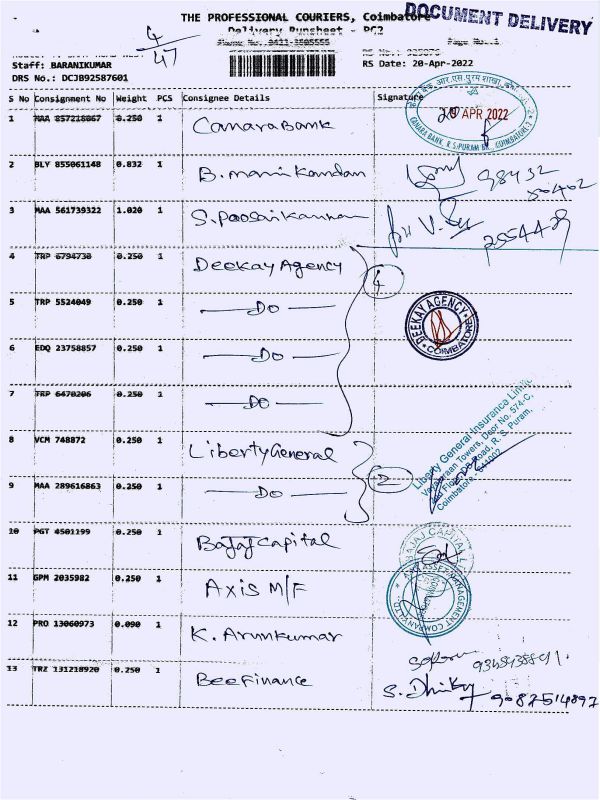 THE PROFESSIONAL COURIERS, Coimbatore
DOCUMENT DELIVERY
Delivery Runsheet - PC2
4/47
Staff: BARANIKUMAR
RS Date: 20-Apr-2022
DRS No.: DCJB92587601
S No Consignment No Weight PCS Consignee Details Signature
1 MAA 857218067 0.250 1 Canara Bank
20 APR 2022
CANARA BANK, R S PURAM BR., COIMBATORE
2 BLY 855061148 0.832 1 B. manikandan
98432
3 MAA 561739322 1.020 1 S. Poosaikannan
2554429
4 TRP 6794730 0.250 1 Deekay Agency
4
5 TRP 5524049 0.250 1 — Do —
DEEKAY AGENCY
COIMBATORE
6 EDQ 23758857 0.250 1 — Do —
7 TRP 6470206 0.250 1 — Do —
8 VCM 748872 0.250 1 Liberty General
2
Liberty General Insurance Limited
Towers, Door No. 574-C,
Road, R. S. Puram,
Coimbatore - 641002
9 MAA 289616863 0.250 1 — Do —
10 PGT 4501199 0.250 1 Bajaj Capital
BAJAJ CAPITAL
11 GPM 2035982 0.250 1 Axis M/F
12 PRO 13060973 0.090 1 K. Arunkumar
13 TRZ 131218920 0.250 1 Bee Finance